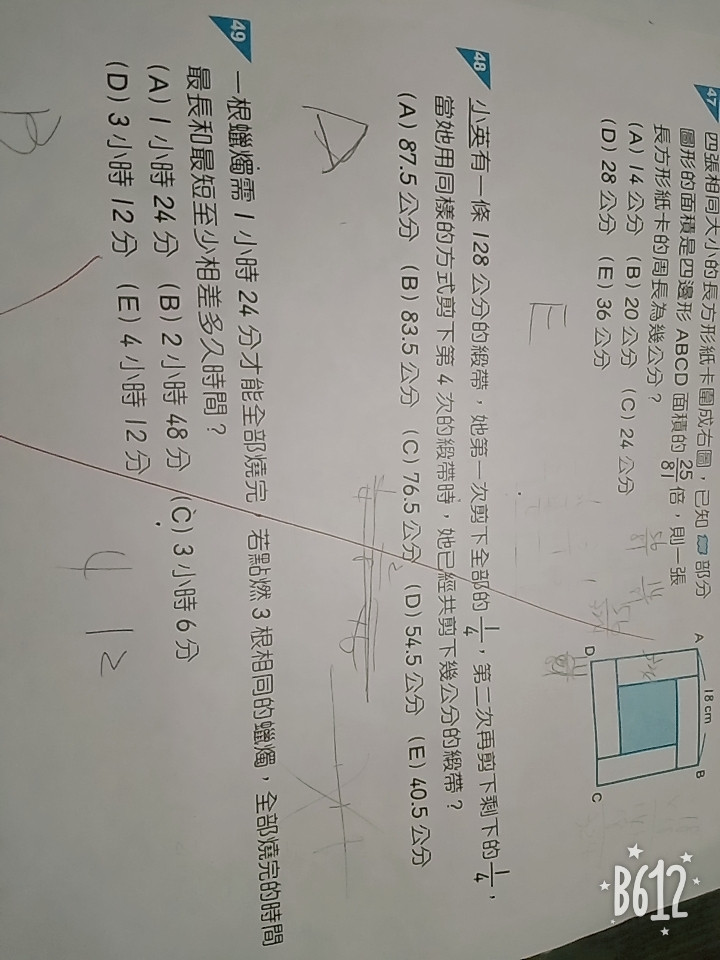 47
四張相同大小的長方形紙卡圍成右圖，已知 部分
圖形的面積是四邊形 ABCD 面積的 25/81 倍，則一張
長方形紙卡的周長為幾公分？
(A) 14 公分 (B) 20 公分 (C) 24 公分
(D) 28 公分 (E) 36 公分
E
A
18 cm
B
D
C
48
小英有一條 128 公分的緞帶，她第一次剪下全部的 1/4，第二次再剪下剩下的 1/4，
當她用同樣的方式剪下第 4 次的緞帶時，她已經共剪下幾公分的緞帶？
(A) 87.5 公分 (B) 83.5 公分 (C) 76.5 公分 (D) 54.5 公分 (E) 40.5 公分
A
49
一根蠟燭需 1 小時 24 分才能全部燒完，若點燃 3 根相同的蠟燭，全部燒完的時間
最長和最短至少相差多久時間？
(A) 1 小時 24 分 (B) 2 小時 48 分 (C) 3 小時 6 分
(D) 3 小時 12 分 (E) 4 小時 12 分
B
4 12
B612